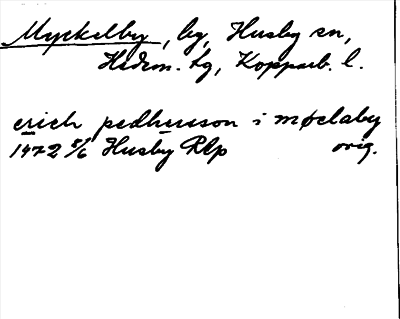 Myckelby, by, Husby sn,
Hedem. tg, Kopparb. l.
erich pedhersson i møclaby
1472 5/6 Husby RAp orig.